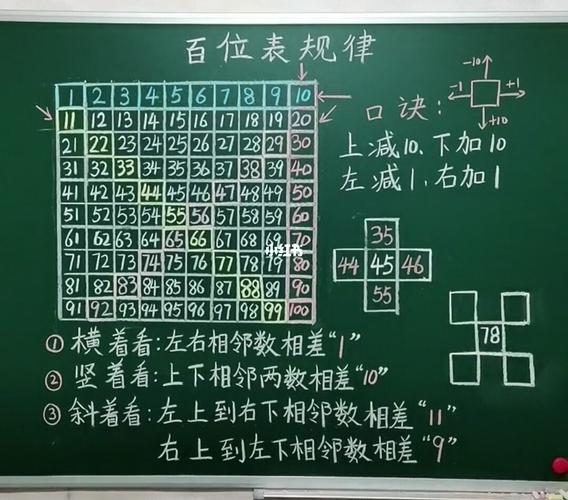 百位表规律
1 2 3 4 5 6 7 8 9 10
11 12 13 14 15 16 17 18 19 20
21 22 23 24 25 26 27 28 29 30
31 32 33 34 35 36 37 38 39 40
41 42 43 44 45 46 47 48 49 50
51 52 53 54 55 56 57 58 59 60
61 62 63 64 65 66 67 68 69 70
71 72 73 74 75 76 77 78 79 80
81 82 83 84 85 86 87 88 89 90
91 92 93 94 95 96 97 98 99 100
小红书
-10
口诀: -1 +1
+10
上减10、下加10
左减1、右加1
35
44 45 46
55
78
① 横着看:左右相邻数相差“1”
② 竖着看:上下相邻两数相差“10”
③ 斜着看:左上到右下相邻数相差“11”
右上到左下相邻数相差“9”